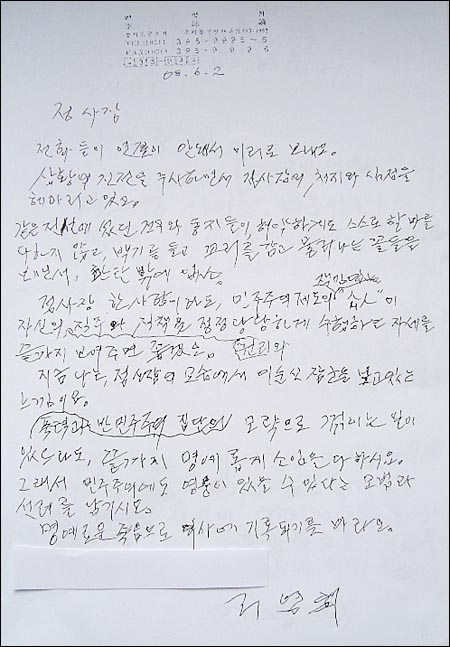 08. 6. 2
정 사장
전화들이 연결이 안돼서 이리로 보내요.
상황의 진전을 주시하면서 정사장의 처지와 심정을
헤아리고 있소.
같은 전선에 섰던 전우와 동지들이 허약하게도 스스로 할 바를
다하지 않고, 백기를 들고 꼬리를 감고 물러나는 꼴들을
보면서, 한탄 밖에 없소.
정사장 한 사람이라도, 민주주의 제도의 책임있는 "公人"이
자신의 직무와 직책을 정정당당하게 수행하는 자세를
끝까지 보여주면 좋겠소. 권리와
지금 나는, 정사장의 모습에서 이순신 장군을 보고 있는
느낌이오.
폭력과 반민주주의 집단의 모략으로 꺾이는 일이
있드라도, 끝까지 명예롭게 소임을 다 하시오.
그래서 민주주의에도 영웅이 있을 수 있다는 모범과
선례를 남기시오.
명예로운 죽음으로 역사에 기록되기를 바라오.
리영희